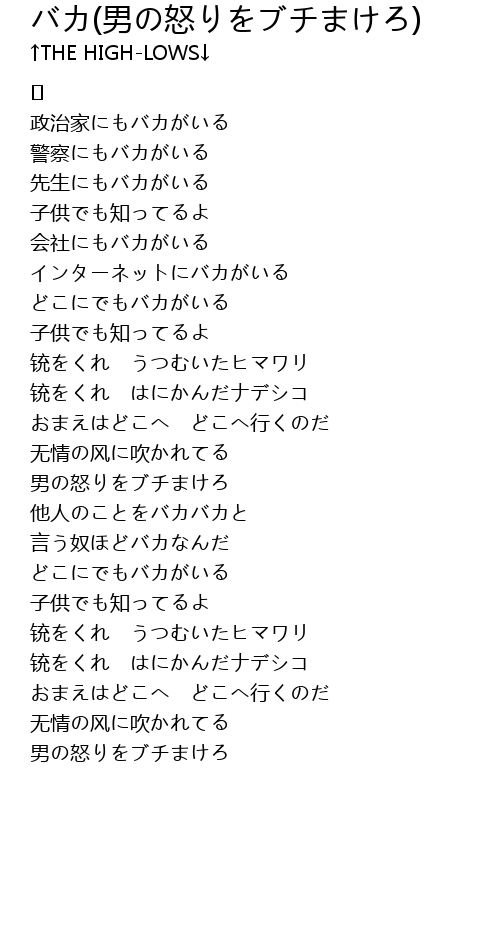 バカ(男の怒りをブチまけろ)
↑THE HIGH-LOWS↓
[]
政治家にもバカがいる
警察にもバカがいる
先生にもバカがいる
子供でも知ってるよ
会社にもバカがいる
インターネットにバカがいる
どこにでもバカがいる
子供でも知ってるよ
铳をくれ　うつむいたヒマワリ
铳をくれ　はにかんだナデシコ
おまえはどこへ　どこへ行くのだ
无情の风に吹かれてる
男の怒りをブチまけろ
他人のことをバカバカと
言う奴ほどバカなんだ
どこにでもバカがいる
子供でも知ってるよ
铳をくれ　うつむいたヒマワリ
铳をくれ　はにかんだナデシコ
おまえはどこへ　どこへ行くのだ
无情の风に吹かれてる
男の怒りをブチまけろ